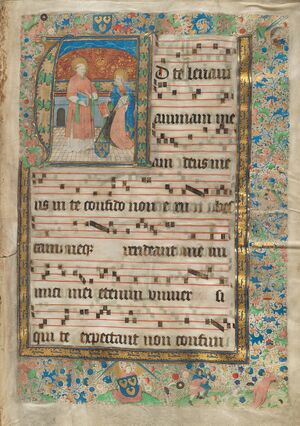 AD te leuaui
animam me
am deus me
us in te confido non erubes
cam neq; irrideant me ini
mici mei etenim vniuer si
qui te expectant non confun